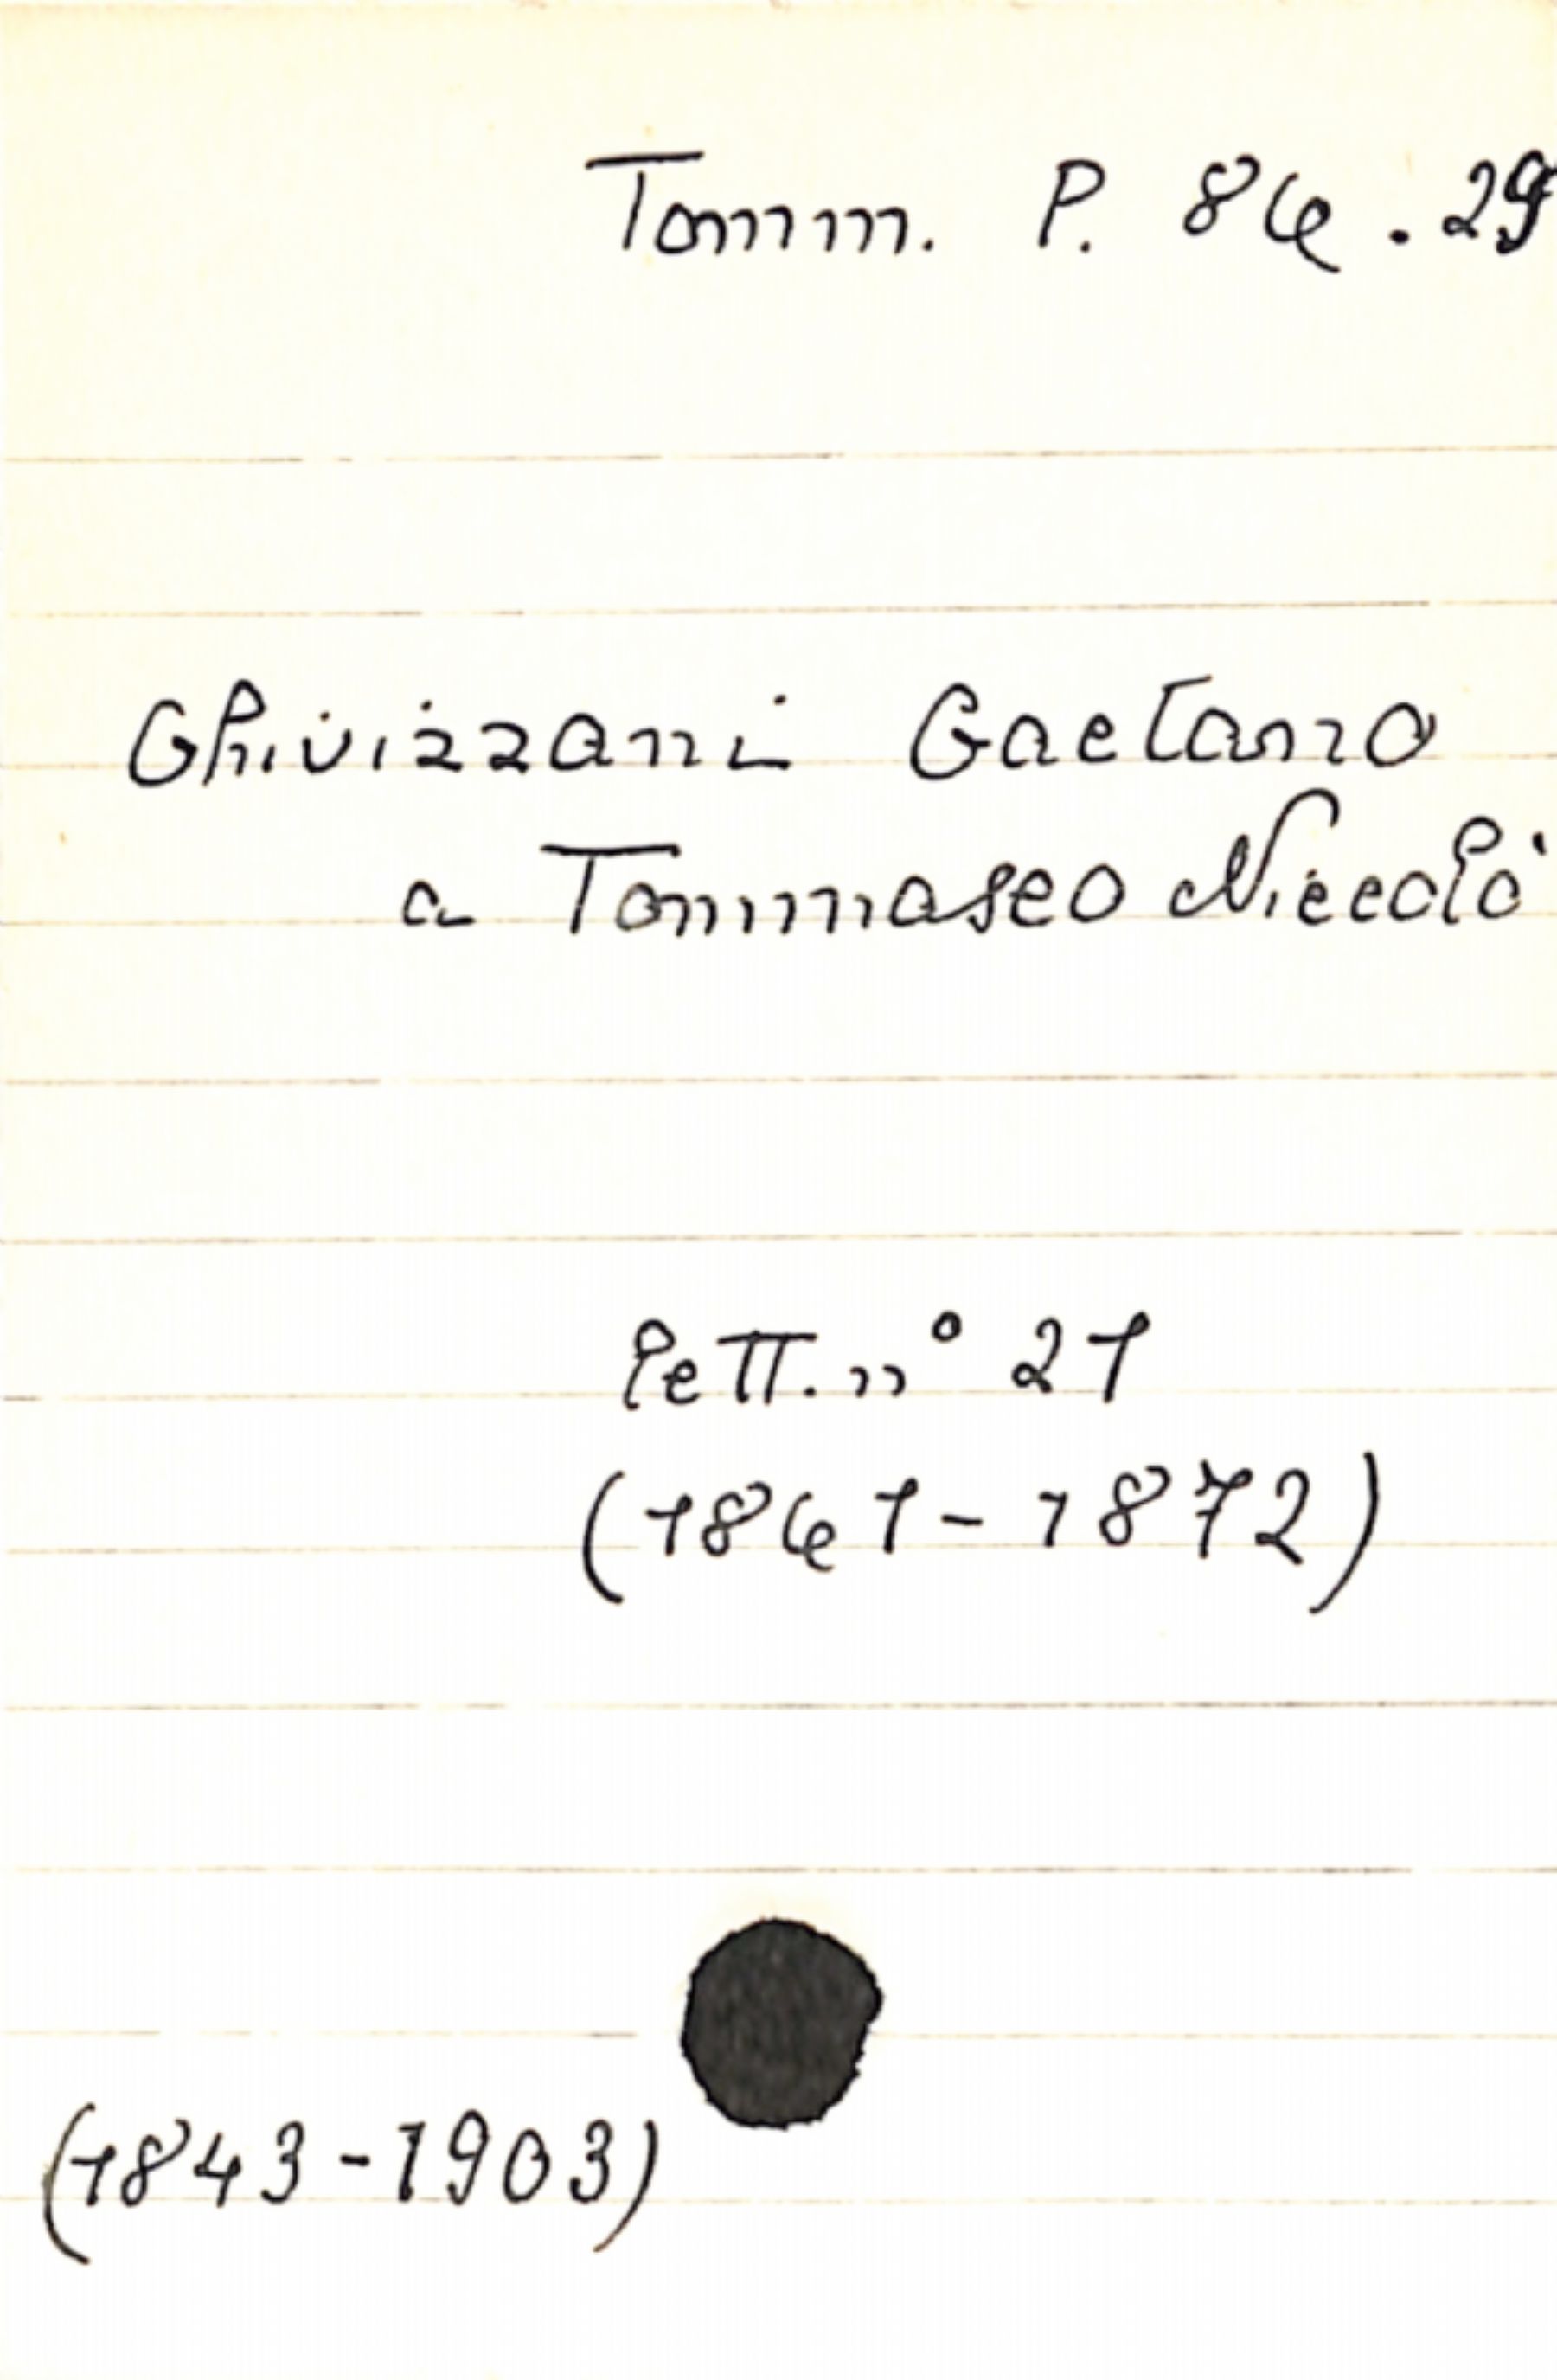 Tomm. P. 86.29
Ghivizzani Gaetano
a Tommaseo Niccolò
lett. n° 21
(1861-1872)
(1843-1903)